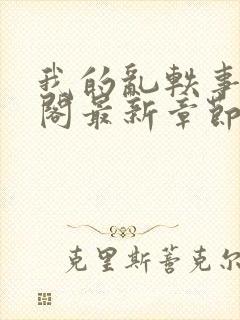 我的亂軼事
閣最新章節
克里斯蒈克尔